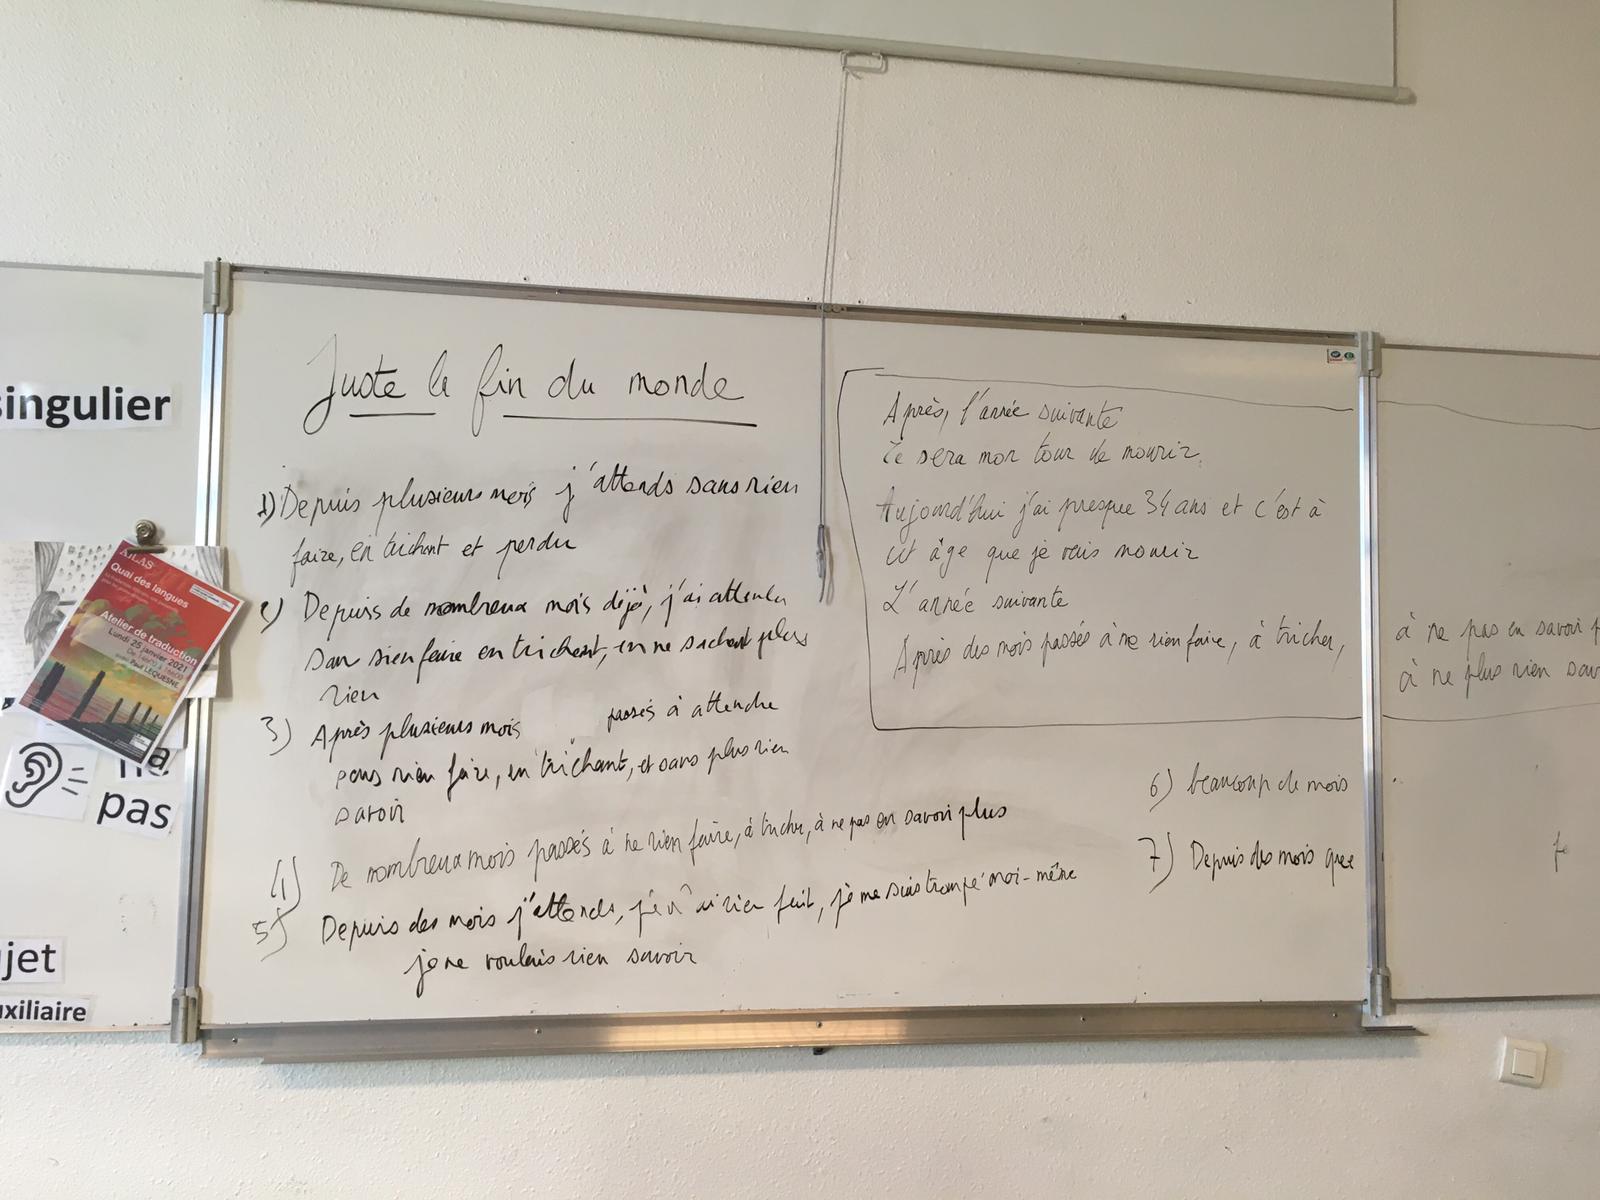 Juste la fin du monde
1) Depuis plusieurs mois j'attends sans rien
faire, en trichant et perdu
2) Depuis de nombreux mois déjà, j'ai attendu
sans rien faire en trichant, en ne sachant plus
rien
3) Après plusieurs mois passés à attendre
sans rien faire, en trichant, et sans plus rien
savoir
4) De nombreux mois passés à ne rien faire, à tricher, à ne pas en savoir plus
5) Depuis des mois j'attends, ai rien fait, je me suis trompé moi-même
je ne voulais rien savoir
Après, l'année suivante
Ce sera mon tour de mourir.
Aujourd'hui j'ai presque 34 ans et c'est à
cet âge que je vais mourir
L'année suivante
Après des mois passés à ne rien faire, à tricher,
à ne pas en savoir p
à ne plus rien sav
6) beaucoup de mois
7) Depuis des mois que
singulier
pas
jet
uxiliaire
ATLAS
Quai des langues
Atelier de traduction
Lundi 25 janvier 2021
Paul LEQUESNE